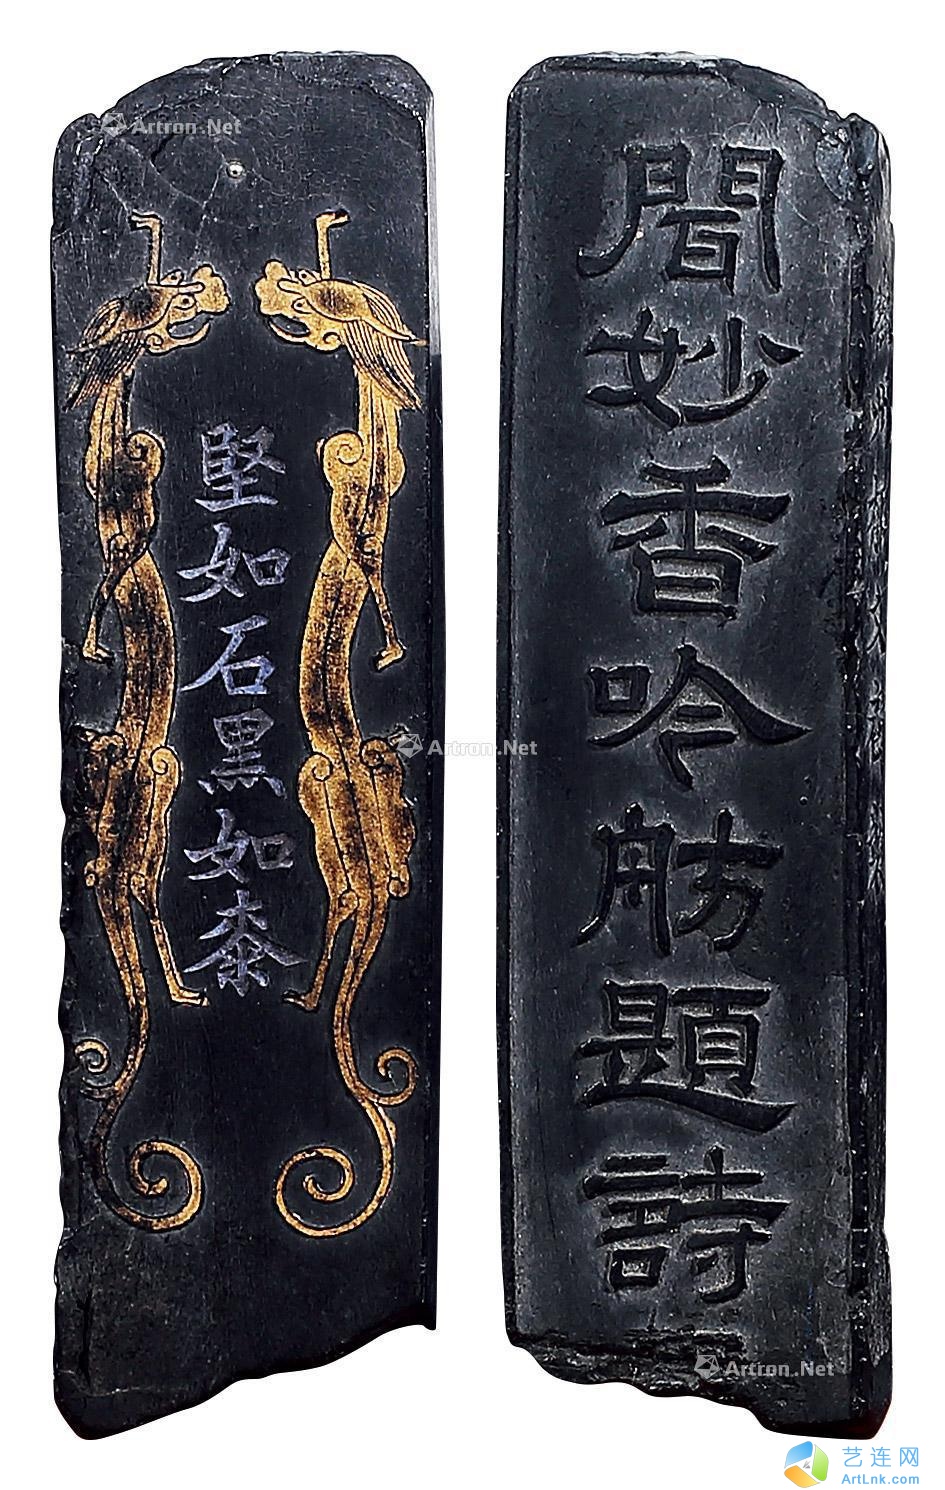 堅如石黑如桼
聞妙香吟舫題詩
Artron.Net
Artron.Net
Artron.Net
艺连网
ArtLnk.com